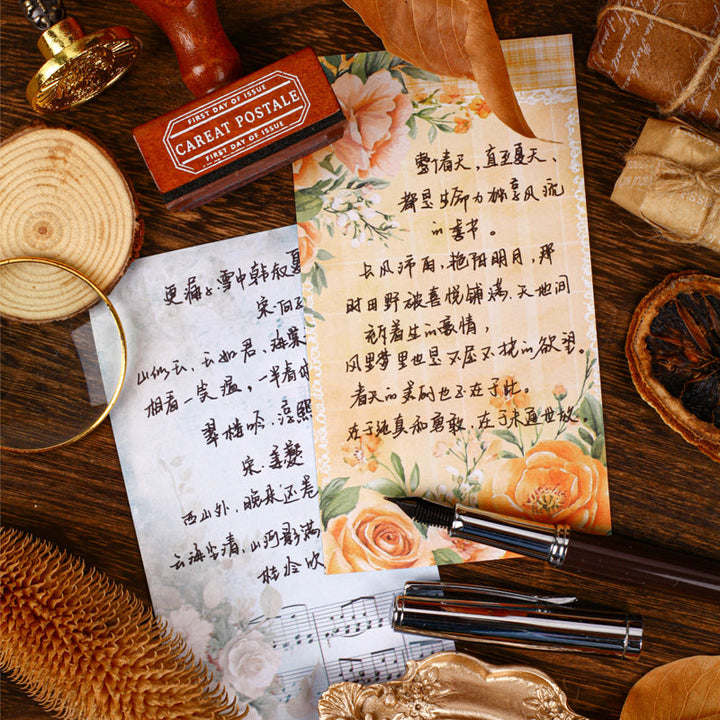 FIRST DAY OF ISSUE
CAREAT POSTALE
FIRST DAY OF ISSUE
整个春天,直至夏天、
都是生命力独享风流
的季节。
长风沛雨,艳阳明月,那
时田野被喜悦铺满,天地间
着生的豪情,
风里梦里也是不屈不挠的欲望。
春天的美丽也正在于此。
在于纯真和勇敢,在于未通世故。
更漏子·雪中韩叔夏
宋 向子
山似玉,玉如君,
相看一笑温,
翠楼吟·淳熙
宋·姜夔
西山外,晚来还卷
云海尘清,山河影满
桂冷吹